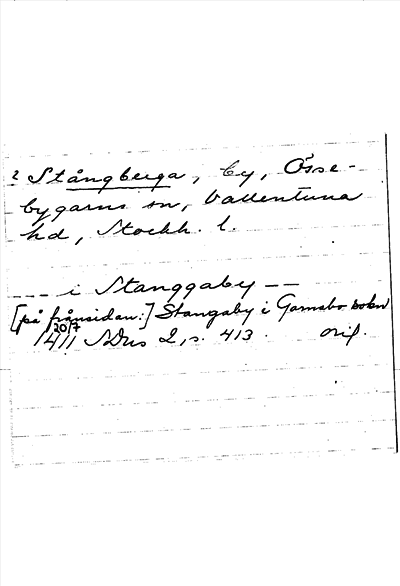 2 Stångberga, by, Össe-
bygarns sn, Vallentuna
hd, Stockh. l.
--- i Stanggaby --
[på frånsidan:] Stangaby i Garnsbo sokn
20/7
1411 SDns 2, s. 413. orig.